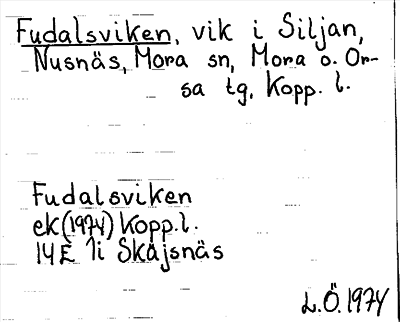 Fudalsviken, vik i Siljan,
Nusnäs, Mora sn, Mora o. Or-
sa tg, Kopp. l.
Fudalsviken
ek (1974) Kopp. l.
14E 1i Skajsnäs
L.Ö. 1974